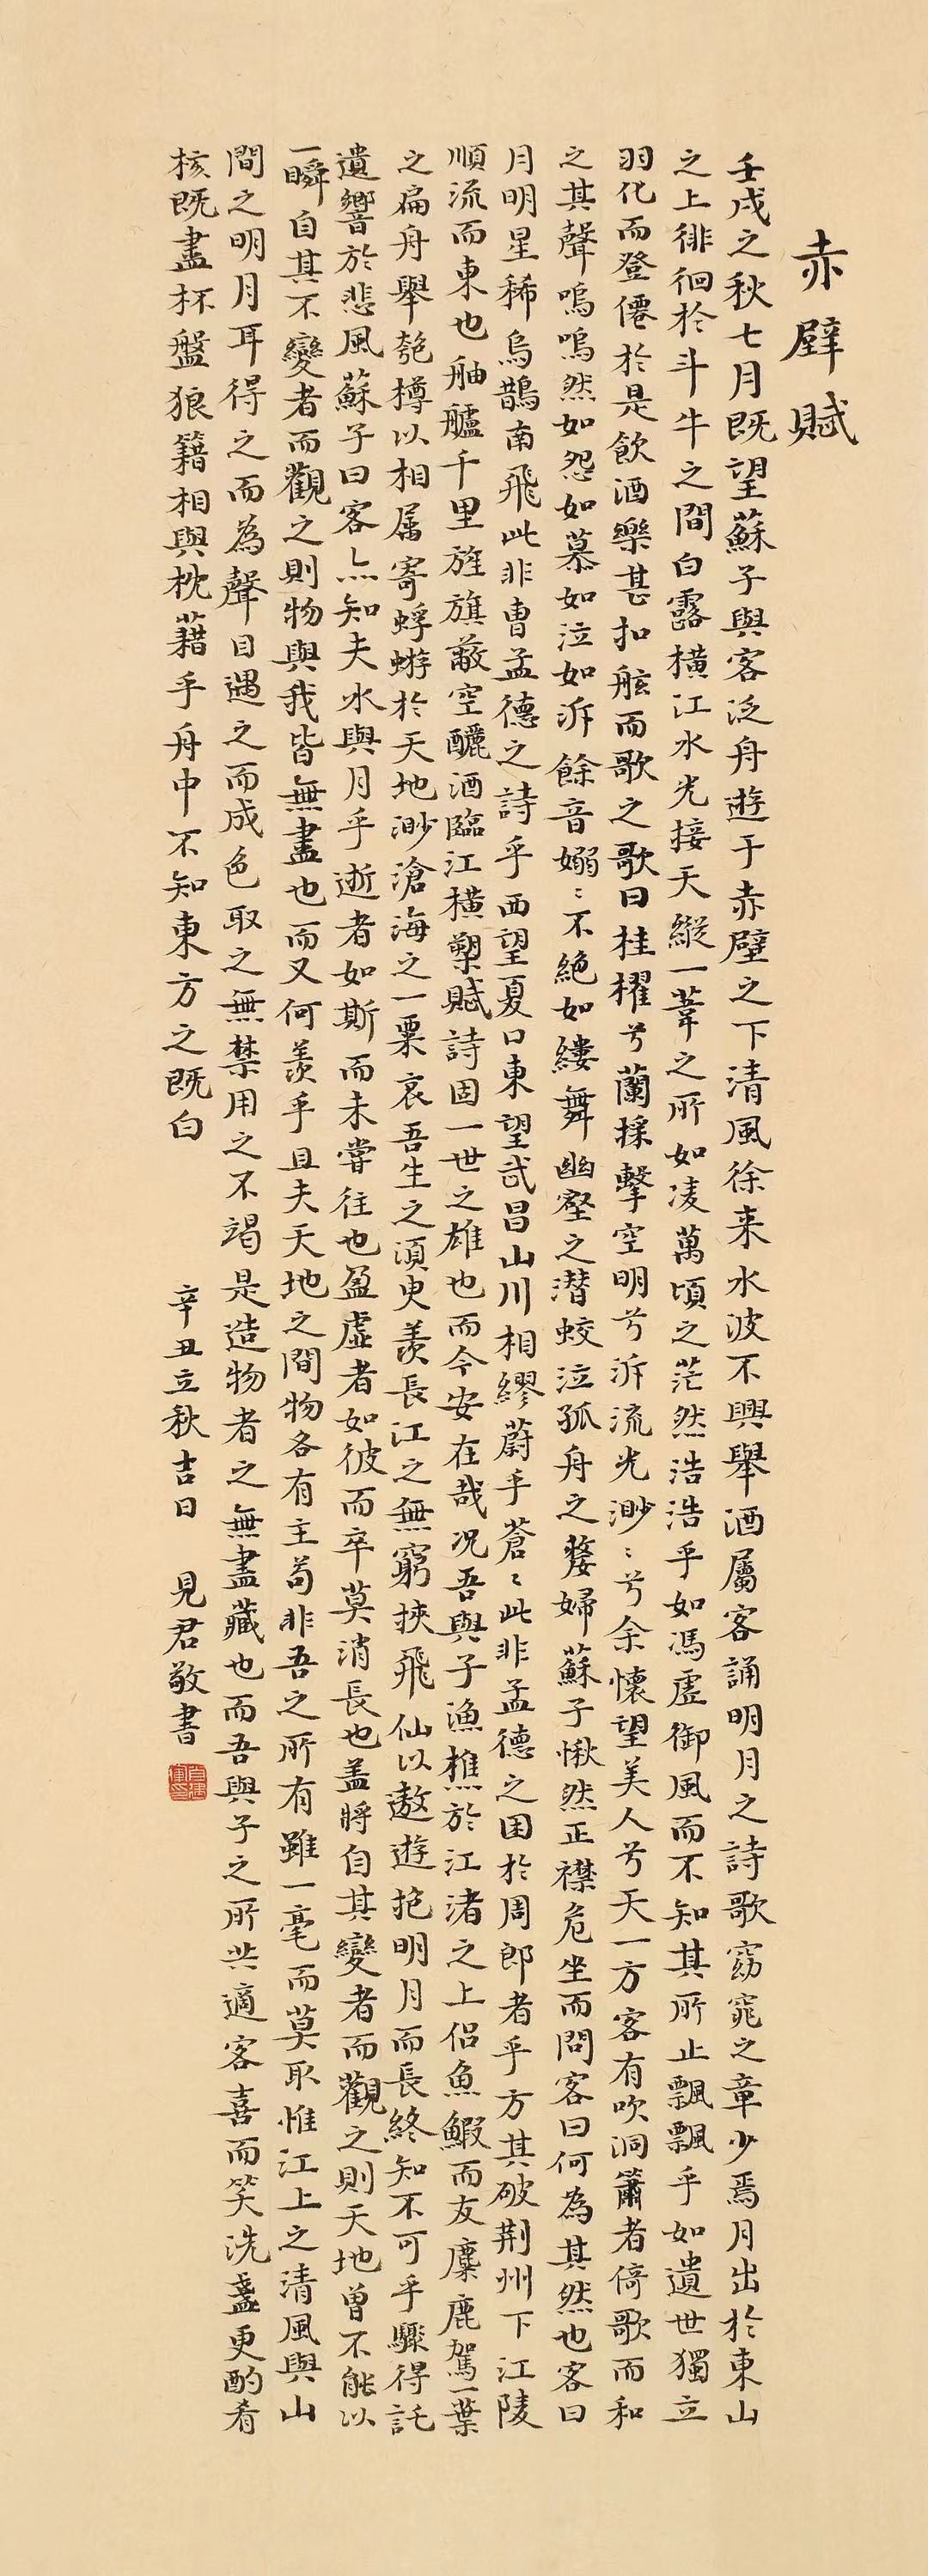 赤壁賦
壬戌之秋七月既望蘇子與客泛舟遊于赤壁之下清風徐来水波不興舉酒屬客誦明月之詩歌窈窕之章少焉月出於東山
之上徘徊於斗牛之間白露橫江水光接天縱一葦之所如凌萬頃之茫然浩浩乎如馮虛御風而不知其所止飄飄乎如遺世獨立
羽化而登僊於是飲酒樂甚扣舷而歌之歌曰桂櫂兮蘭槳擊空明兮泝流光渺〻兮余懷望美人兮天一方客有吹洞簫者倚歌而和
之其聲嗚嗚然如怨如慕如泣如泝餘音嫋〻不絕如縷舞幽壑之潜蛟泣孤舟之嫠婦蘇子愀然正襟危坐而問客曰何為其然也客曰
月明星稀烏鵲南飛此非曹孟德之詩乎西望夏口東望武昌山川相繆蔚乎蒼〻此非孟德之困於周郎者乎方其破荆州下江陵
順流而東也舳艫千里旌旗蔽空釃酒臨江橫槊賦詩固一世之雄也而今安在哉况吾與子漁樵於江渚之上侣魚鰕而友麋鹿駕一葉
之扁舟舉匏樽以相属寄蜉蝣於天地渺滄海之一粟哀吾生之須臾羡長江之無窮挾飛仙以遨遊抱明月而長終知不可乎驟得託
遺響於悲風蘇子曰客亦知夫水與月乎逝者如斯而未嘗往也盈虛者如彼而卒莫消長也盖將自其變者而觀之則天地曾不能以
一瞬自其不變者而觀之則物與我皆無盡也而又何羨乎且夫天地之間物各有主苟非吾之所有雖一毫而莫取惟江上之清風與山
間之明月耳得之而為聲目遇之而成色取之無禁用之不竭是造物者之無盡藏也而吾與子之所共適客喜而笑洗盞更酌肴
核既盡杯盤狼籍相與枕藉乎舟中不知東方之既白
辛丑立秋吉日 見君敬書